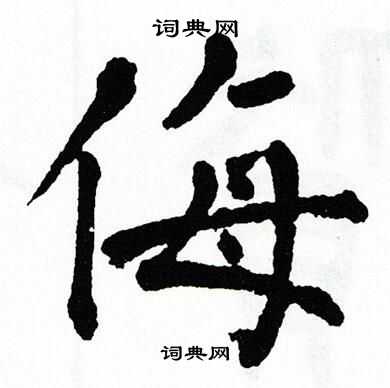 词典网
侮
词典网